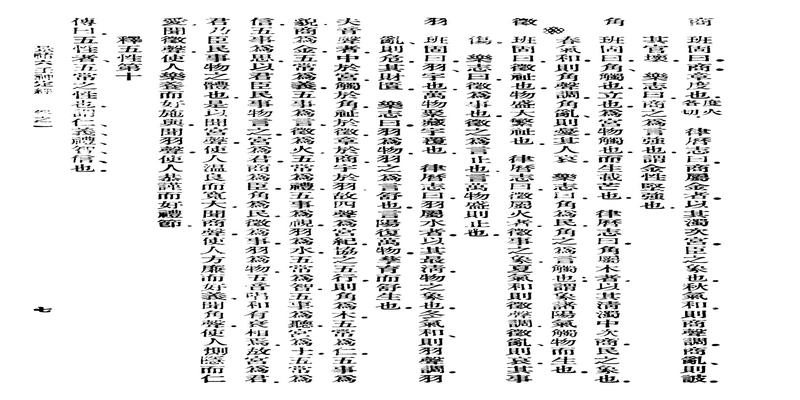 商 班固曰商章度也各度火切 律曆志曰商屬金者以其濁次宮臣之象也秋氣和則商聲調商亂則詖
其官壞 樂志曰商之為言強也謂金性堅強也
角 班固曰角觸也立也為宮物觸也而生戴芒也 律曆志曰角屬木者以其清濁中次商民之象也
春氣和則角聲調角亂則憂其人哀 樂志曰角為民角之為言觸也謂象諸陽氣觸物而生也
徵 班固曰徵祉也物盛大繁祉也 律曆志曰徵屬火者徵事之象夏氣和則徵聲調徵亂則哀其事
傷 樂志曰徵為事也徵之為言止也言萬物盛則止也
羽 班固曰羽宇也萬物聚藏宇覆也 律曆志曰羽屬水者以其最清物之象也冬氣和則羽聲調羽
亂則危其財匱 樂志曰羽為物羽之為言舒也言陽復萬物孳育而舒生也
夫音聲者中於宮觸於角祉於徵章於商宇於羽故四聲為宮紀協之五行則角為木五常為仁五事為
貌商為金五義為言徵為火五常為禮五事為視羽為水五常為智五事為聽宮為土五常為
信五事為思以君臣民事物言之宮為君商為臣角為民徵為事羽為物五音唱和有象相為故宮為君
君乃臣民事物之體也是以聞宮聲使人溫良而寬大聞商聲使人方廉而好義聞角聲使人惻隱而仁
愛聞徵聲使人樂養而也好施輿聞羽聲使人恭謹而好禮節
釋五性第十
傳曰五性者五常之性也謂仁義禮智信也
七